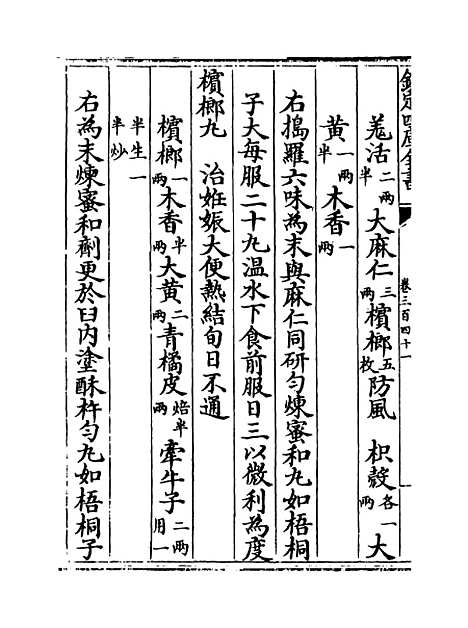 欽定四庫全書
卷三百四十一
羗活二兩半大麻仁三兩檳榔五枚防風 枳殼各一兩大
黄一兩半木香一兩
右搗羅六味為末與麻仁同研勻煉蜜和丸如梧桐
子大每服二十丸温水下食前服日三以微利為度
檳榔丸 治姙娠大便熱結旬日不通
檳榔一兩木香半兩大黄二兩青橘皮焙半兩牽牛子二兩用一
半生一半炒
右為末煉蜜和劑更於臼内塗酥杵勻丸如梧桐子